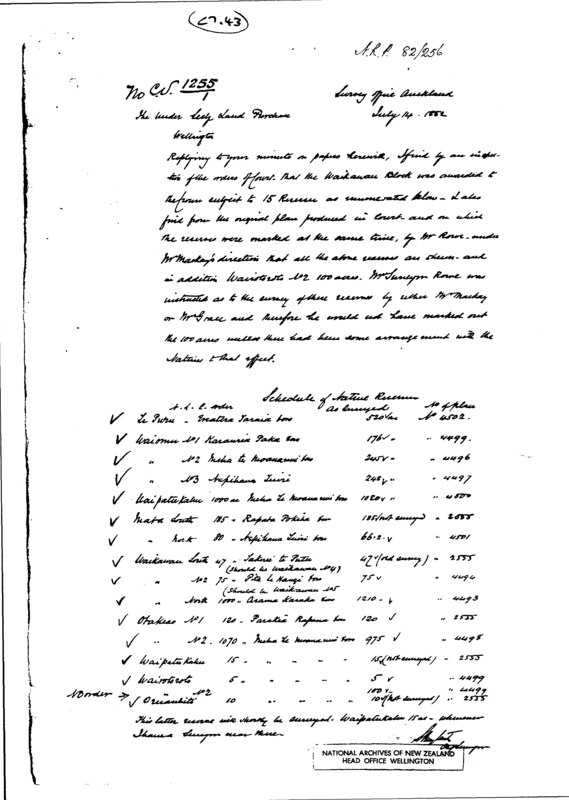 (27.43)
N.L.P. 82/256
No C.W. 1255/1
Survey Office Auckland
July 14. 1882
The Under Secy Land Purchase
Wellington
Replying to your minute on papers herewith, I find by an inspec-
tion of the orders of Court. that the Waikawau Block was awarded to
the Crown subject to 15 Reserves as enumerated below - I also
find from the original plan produced in Court and on which
the reserves were marked at the same time, by Mr Rowe - under
Mr Mackay's direction that all the above reserves are shewn - and
in addition Wairotoroto No 2 100 acres. Mr Surveyor Rowe was
instructed as to the survey of these reserves by either Mr Mackay
or Mr Grace and therefore he would not have marked out
the 100 acres unless there had been some arrangement with the
Natives to that effect.
Schedule of Native Reserves
N. L. C. order as Surveyed No of plan
Te Puru - 520 No 4502.
Waiomu No 1 176 " " 4499.
" No 2 Meha te Moananui 245 " " 4496
" No 3 Nepihana 242 " " 4497
Waipatukahu 1000 ac Meha Te Moananui 1020 " " 4500
Mata South 185 - 185 (not surveyed) " 2555
" North 80 - Nepihana 66.2. " 4501
Waikawau South 47 " 47 " (old survey) - 2555
(Should be Waikawau No 4)
" No 2 75 - Pita te 75 " 4494
(Should be Waikawau No 5
" North 1000 - Arama Karaka 1210 - " 4493
Otakeao No 1 120 - 120 " 2555
" No 2. 1070 - Meha Te Moananui 975 " 4495
Waipatukahu 15 - " " " " 15 (not surveyed) - 2555
Wairotoroto 5 - " " " " 5 " 4499
No order → " No 2 100 " 4499
10 " " " " 10 (Not surveyed) " 2555
This latter reserve will shortly be surveyed. Waipatukahu 15 ac - whenever
I have a Surveyor near there.
NATIONAL ARCHIVES OF NEW ZEALAND
HEAD OFFICE WELLINGTON